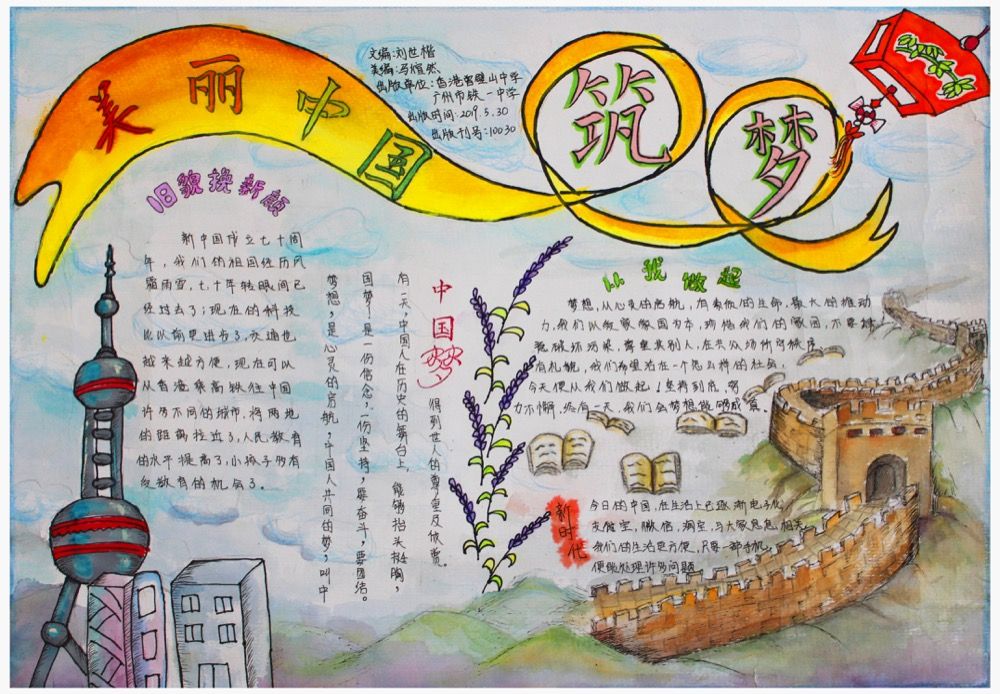 美丽中国
筑梦
文编:刘世楷
美编:冯 然
出版单位:香港 山中学
广州市铁一中学
出版时间:2019.5.30
出版刊号:10030
旧貌换新颜
新中国成立七十周
年,我们的祖国经历风
霜雨雪,七十年转眼间已
经过去了;现在的科技
比以前更进步了,交通也
越来越方便,现在可以
从香港乘高铁往中国
许多不同的城市,将两地
的距离拉近了,人民教育
的水平提高了,小孩子多有
受教育的机会了。
中国梦
梦想,是心灵的启航,中国人共同的梦,叫中
国梦!是一份信念,一份坚持,要奋斗,要团结。
有一天,中国人在历史的舞台上,能够抬头挺胸,
得到世人的尊重及欣赏。
从我做起
梦想,从心灵的启航,有着你的生命,最大的推动
力,我们以 家国为本,功 我们的家园,不要
破坏污染,尊重其别人,在共公场所守秩序
有礼貌,我们希望活在一个怎么样的社会,
今天便从我们做起!坚持到底,努
力不懈,终有一天,我们会梦想能够成真。
新时代
今日的中国,在生活上已逐渐电子化,
支付宝,微信,淘宝,与大家息息相关,
我们的生活更方便,只要一部手机,
便能处理许多问题